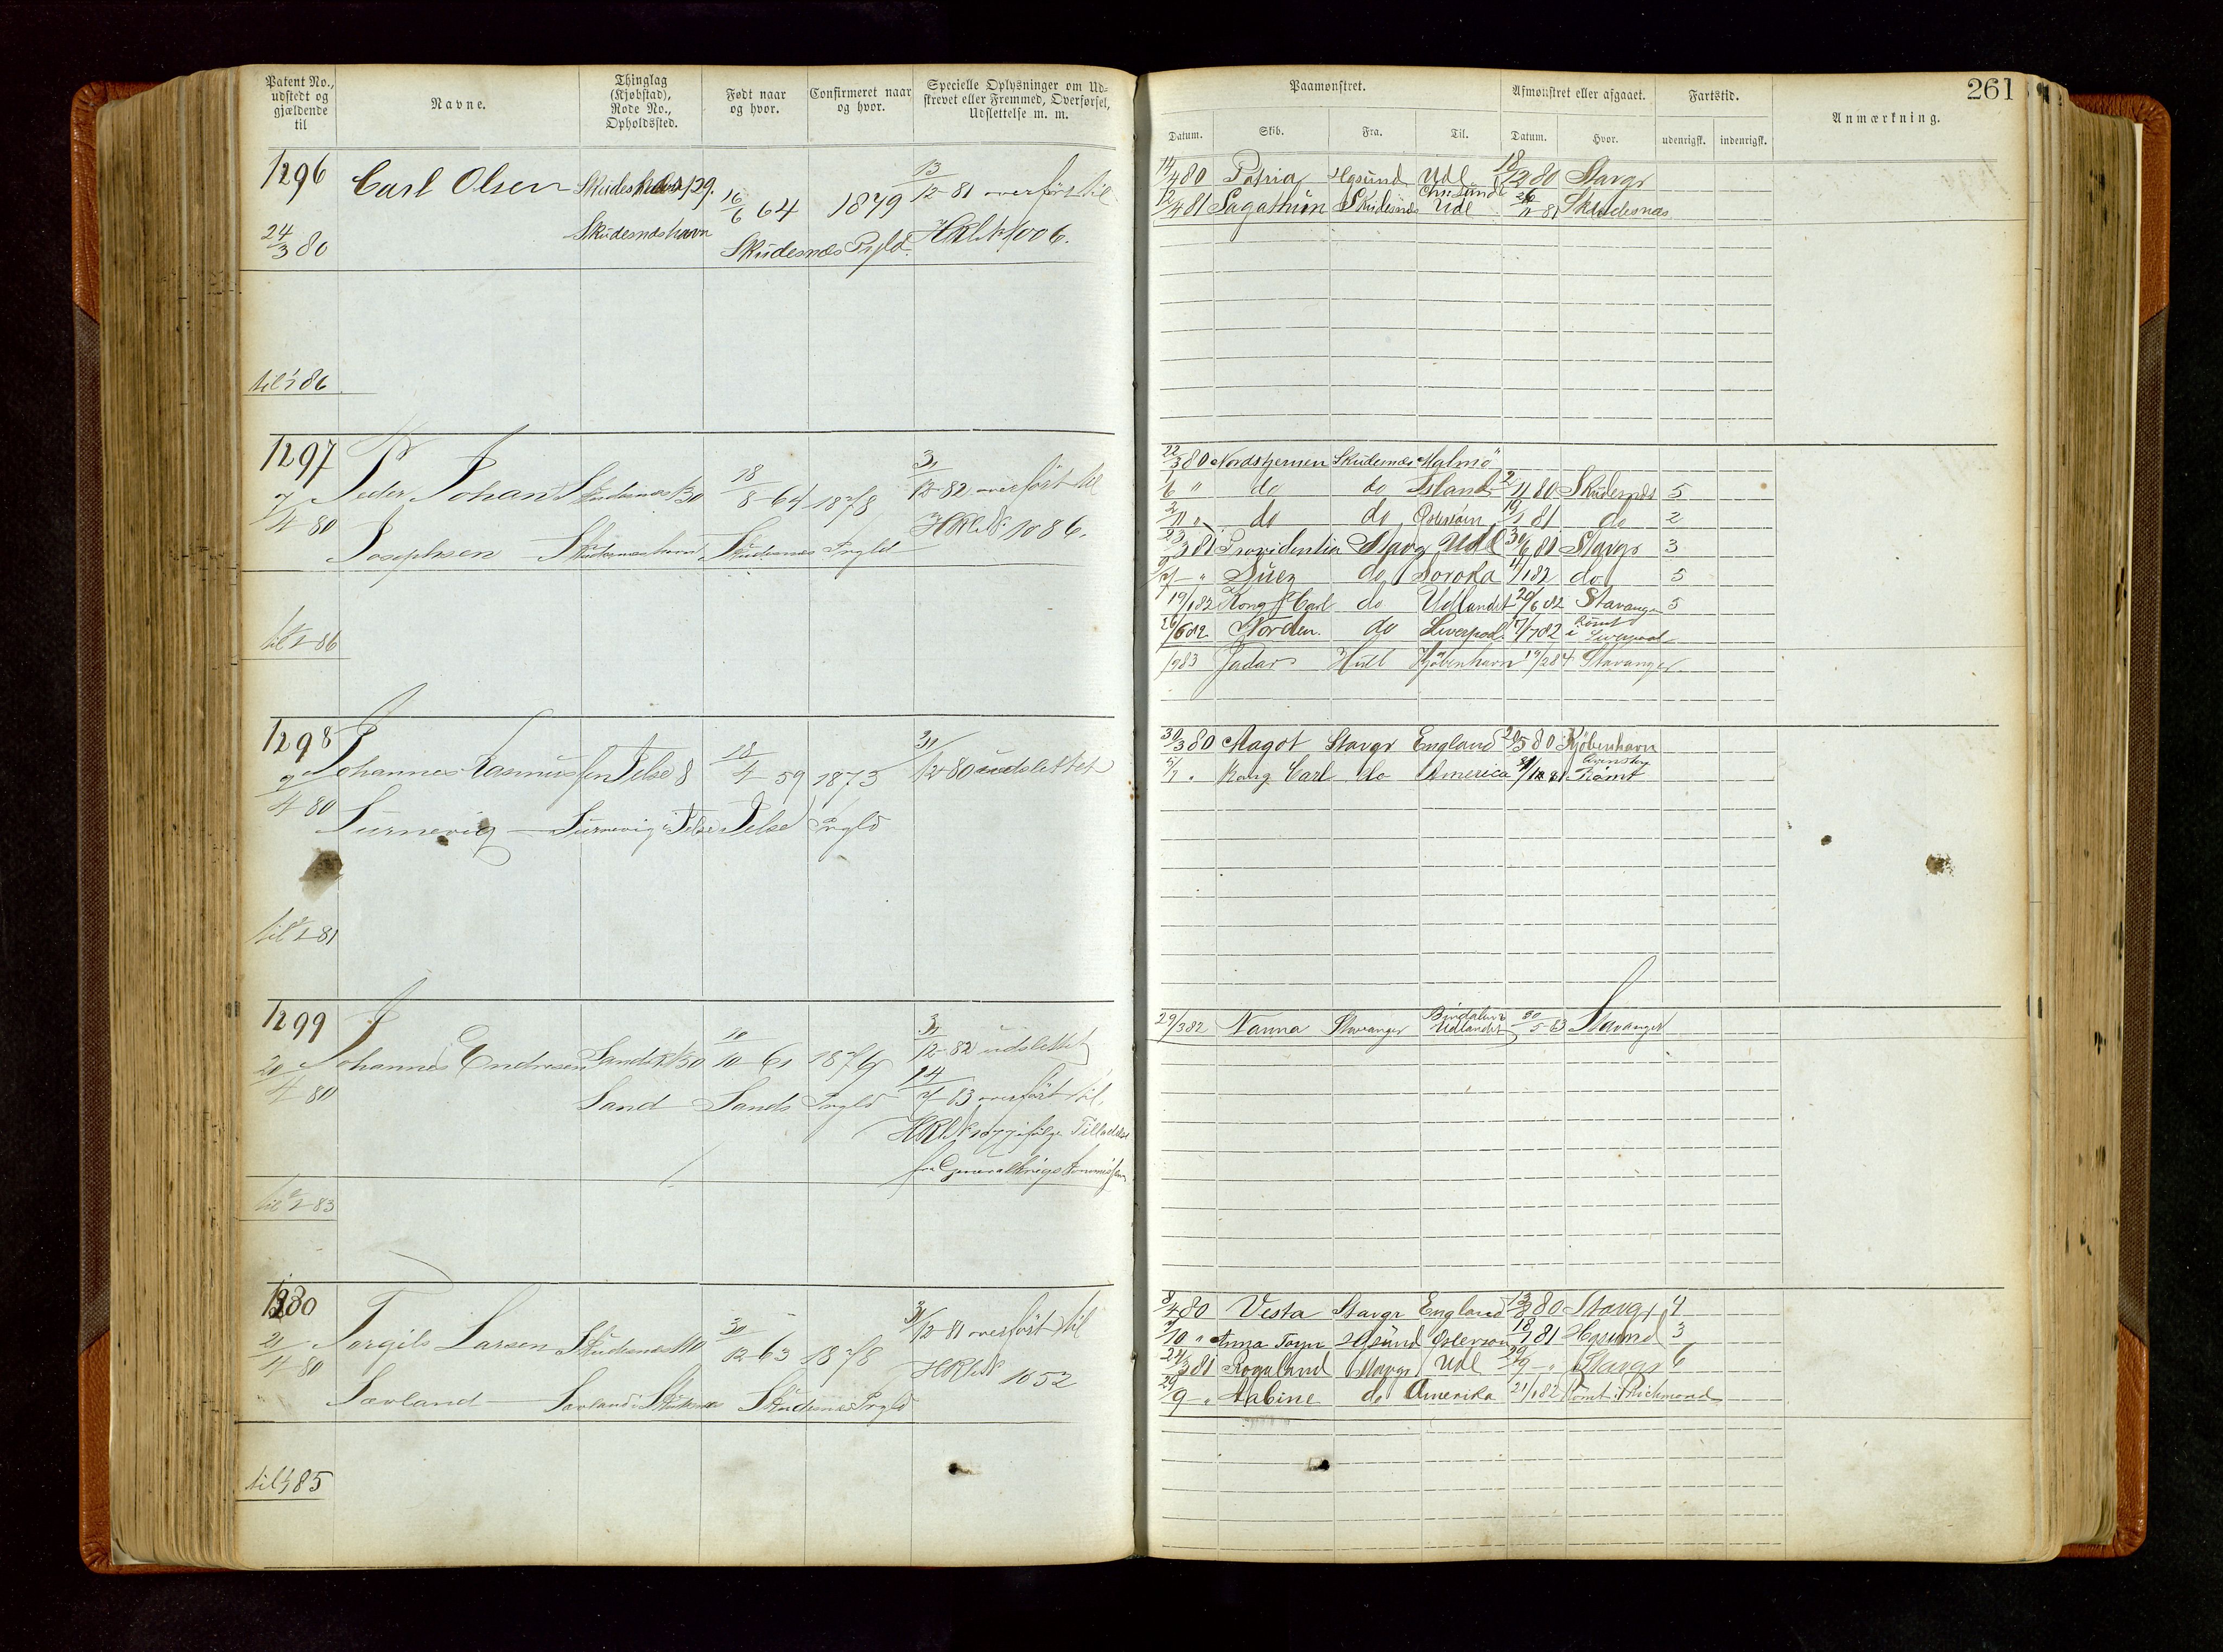 261
Patent No., udstedt og gjældende til
Navne.
Thinglag (Kjøbstad), Rode No., Opholdssted.
Født naar og hvor.
Confirmeret naar og hvor.
Specielle Oplysninger om Udskrevet eller Fremmed, Overførsel, Udslettelse m. m.
Paamønstret.
Afmønstret eller afgaaet.
Fartstid.
Anmærkning.
Datum. Skib. Fra. Til. Datum. Hvor. udenrigsk. indenrigsk.
1296 Carl Olsen 129. 16/6 64 1879 13/12-81 overført til
24/3 80 Skudesnæshavn Skudesnæs Prgld. HRl. No 1006.
til 86
14/4 80 Patria Hgsund Udl 18/12 80 Stavgr
12/4 81 Sagathun Skudesnæs Udl 81 Skudesnæs
1297 Peder Johan Skudesnæs 130 18/8-64 1878 31/12-82 overført til
7/4 80 Josephsen Skudesnæshavn Skudesnæs Prgld HRl. No 1086.
til 86
22/3 80 Nordstjernen Skudesnæs Malmö
" do do Island 2/11 80 Skudesnæs 5
2/11 " do do 81 do 2
23/3 81 Providentia Stavgr Udl 30/6 81 Stavgr 3
" Suez do Soroka 182 do 5
19/1 82 Kong Carl do Udlandet 20/6 82 Stavanger 5
26/6 82 Norden do Liverpool 17/7 82 Rømt i Liverpool
83 Jadar Hull Kjøbenhavn 19/2 84 Stavanger
1298 Johannes Rasmussen Jelse 8 18/4-59 1873 31/12-80 udslettet
9/4 80 Surnevig Surnevig i Jelse Jelse Prgld
til 81
30/3 80 Magot Stavgr England 20/5 80 Kjøbenhavn
5/7 " Kong Carl do America 81 Rømt
1299 Johannes Endresen Sand 130 10/10-61 1876 31/12-82 udslettet
20/4 80 Sand Sands Prgld 14/7-83 overført til
HRl. No 1077 ifølge Tilladelse
fra Generalkrigskommissæren
til 83
29/3 82 Nanna Stavanger Udlandet 30/5-83 Stavanger
1300 Torgils Larsen Skudesnæs 110 30/12-63 1878 31/12-81 overført til
21/4 80 Sævland Sævland i Skudesnæs Skudesnæs Prgld HRl. No 1052
til 85
8/4 80 Vesta Stavgr England 13/8 80 Stavgr 4
10 " Anna Hgsund 18/1 81 Hgsund 3
24/3 81 Rogaland Stavgr Udl 29/9 " Stavgr 6
29/9 " Sabine do Amerika 21/1 82 Rømt i Richmond